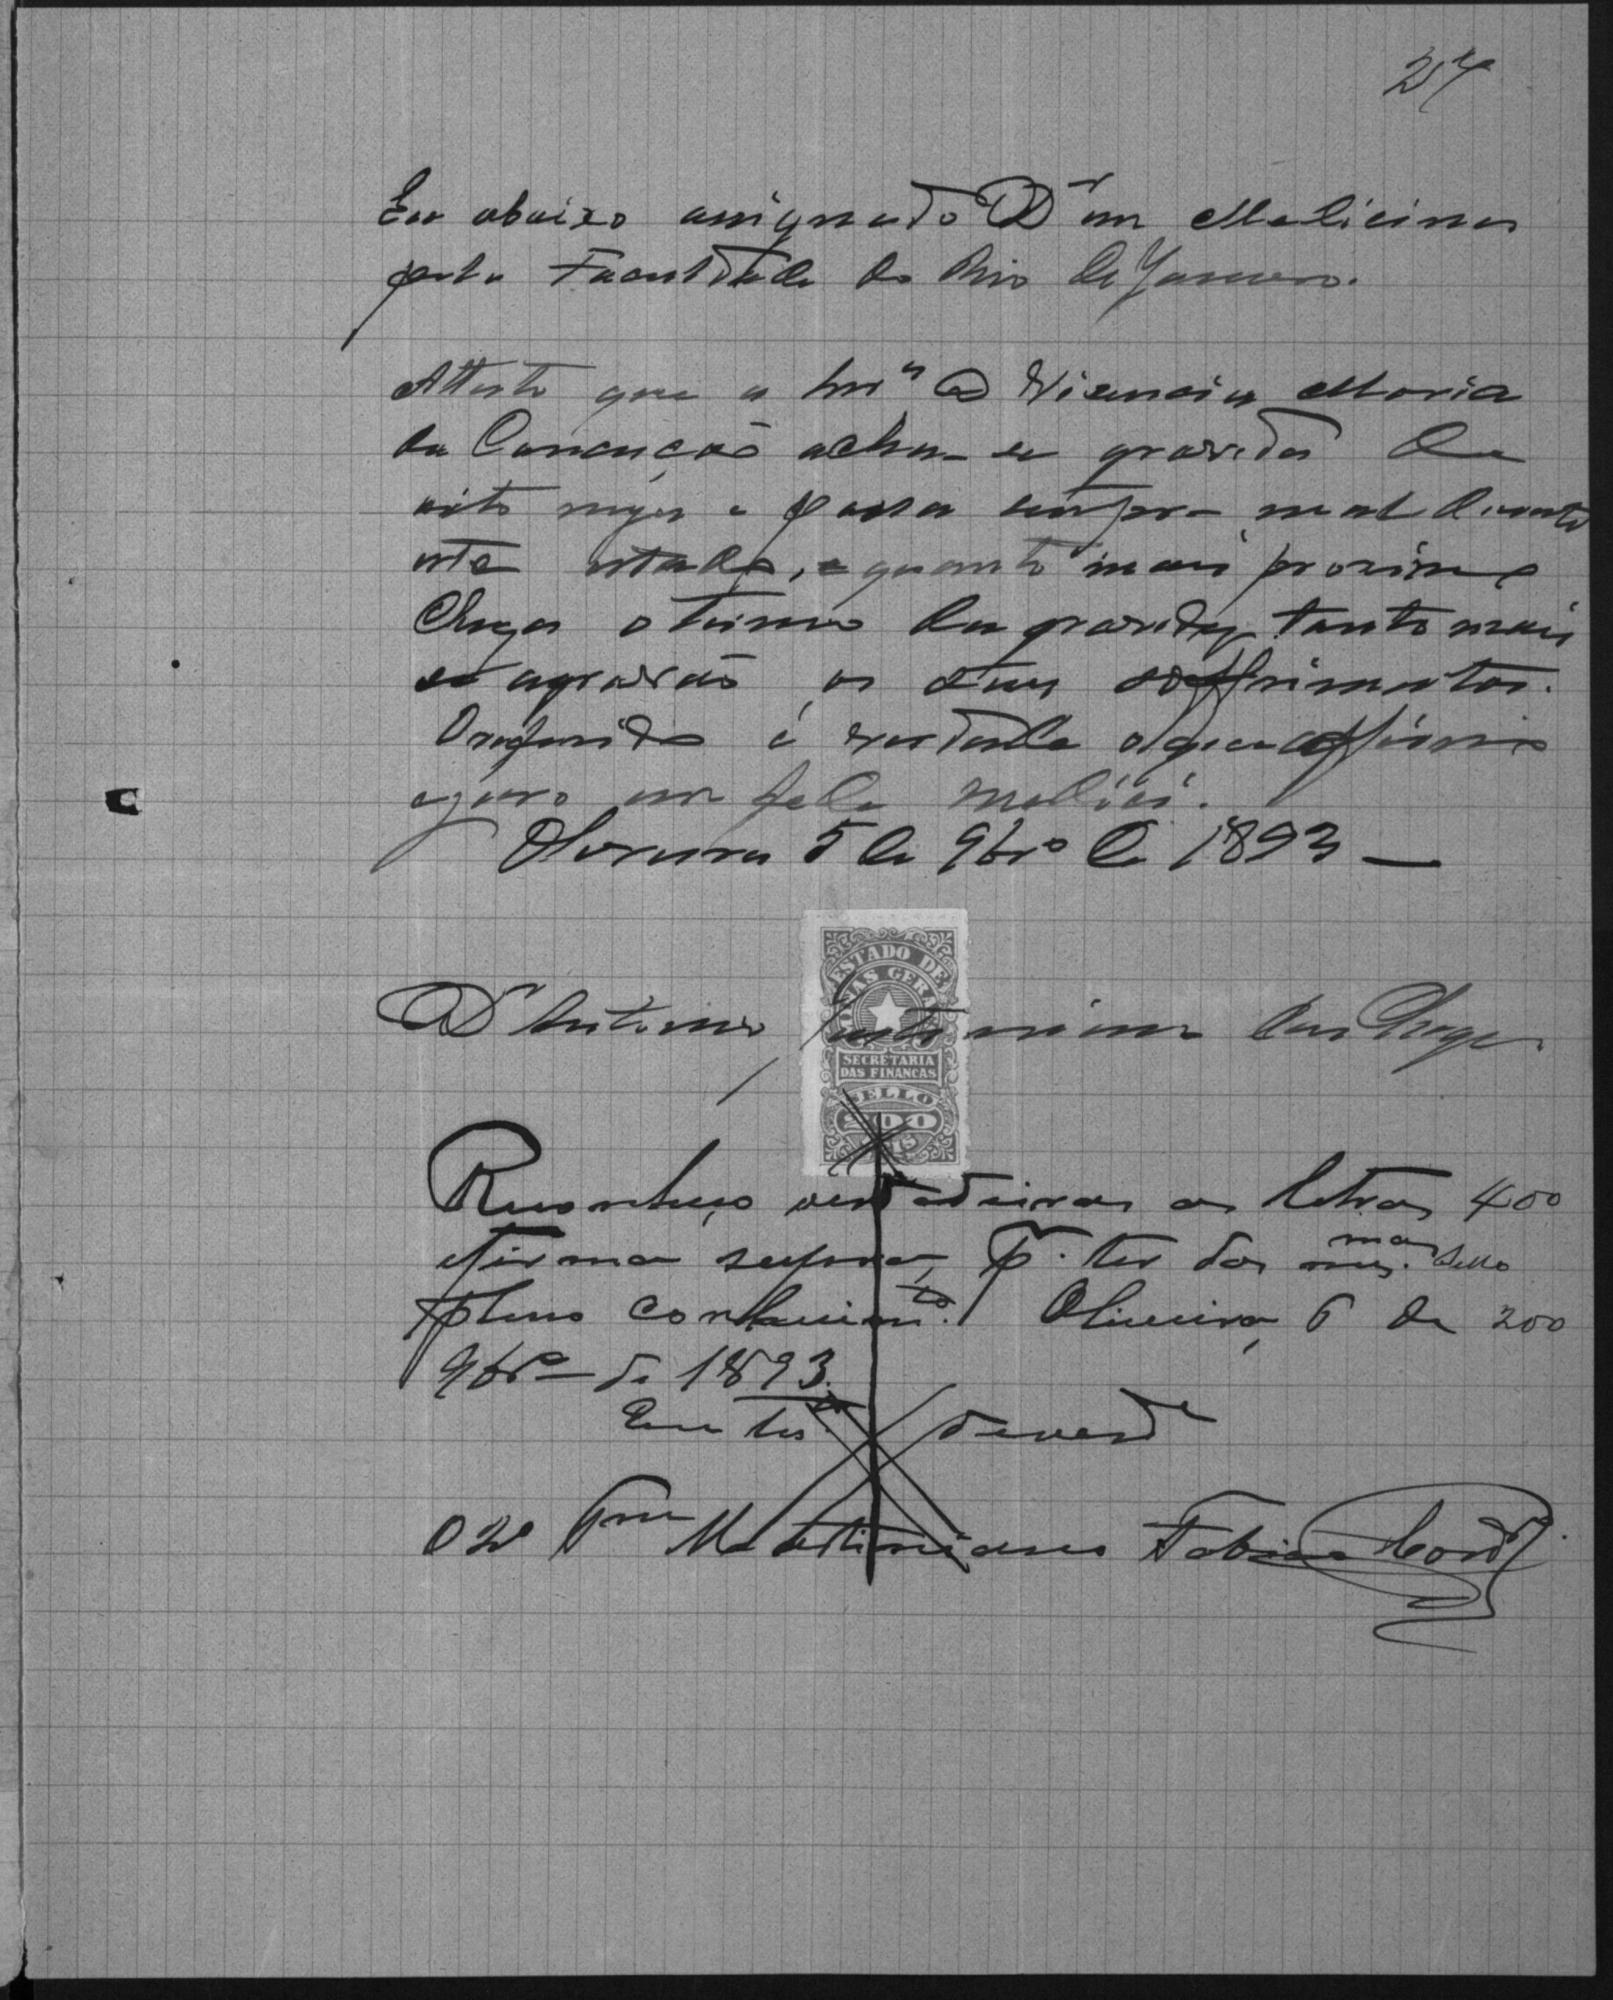 27
Eu abaixo assignado Dr em Medicina
pela Faculdade do Rio de Janeiro.
Attesto que a Snrª D Vicencia Maria
da Conceição acha-se gravida de
oito mezes e passa sempre mal durante
este estado, e quanto mais proximo
chega o termo da gravidez, tanto mais
se agravão os seus soffrimentos.
O referido é verdade o que affirmo
e juro em fé de medico.
Oliveira 5 de 9brº de 1893
ESTADO DE
MINAS GERAES
SECRETARIA
DAS FINANCAS
SELLO
200
RÉIS
Dr Antonio Justiniano das Chagas
Reconheço verdadeiras as letras 400
e firma supra, pr. ter das mes.mas Sello
pleno conhecimto. Oliveira, 6 de 200
9brº de 1893.
Em testº de verde
O 2º Martiniano